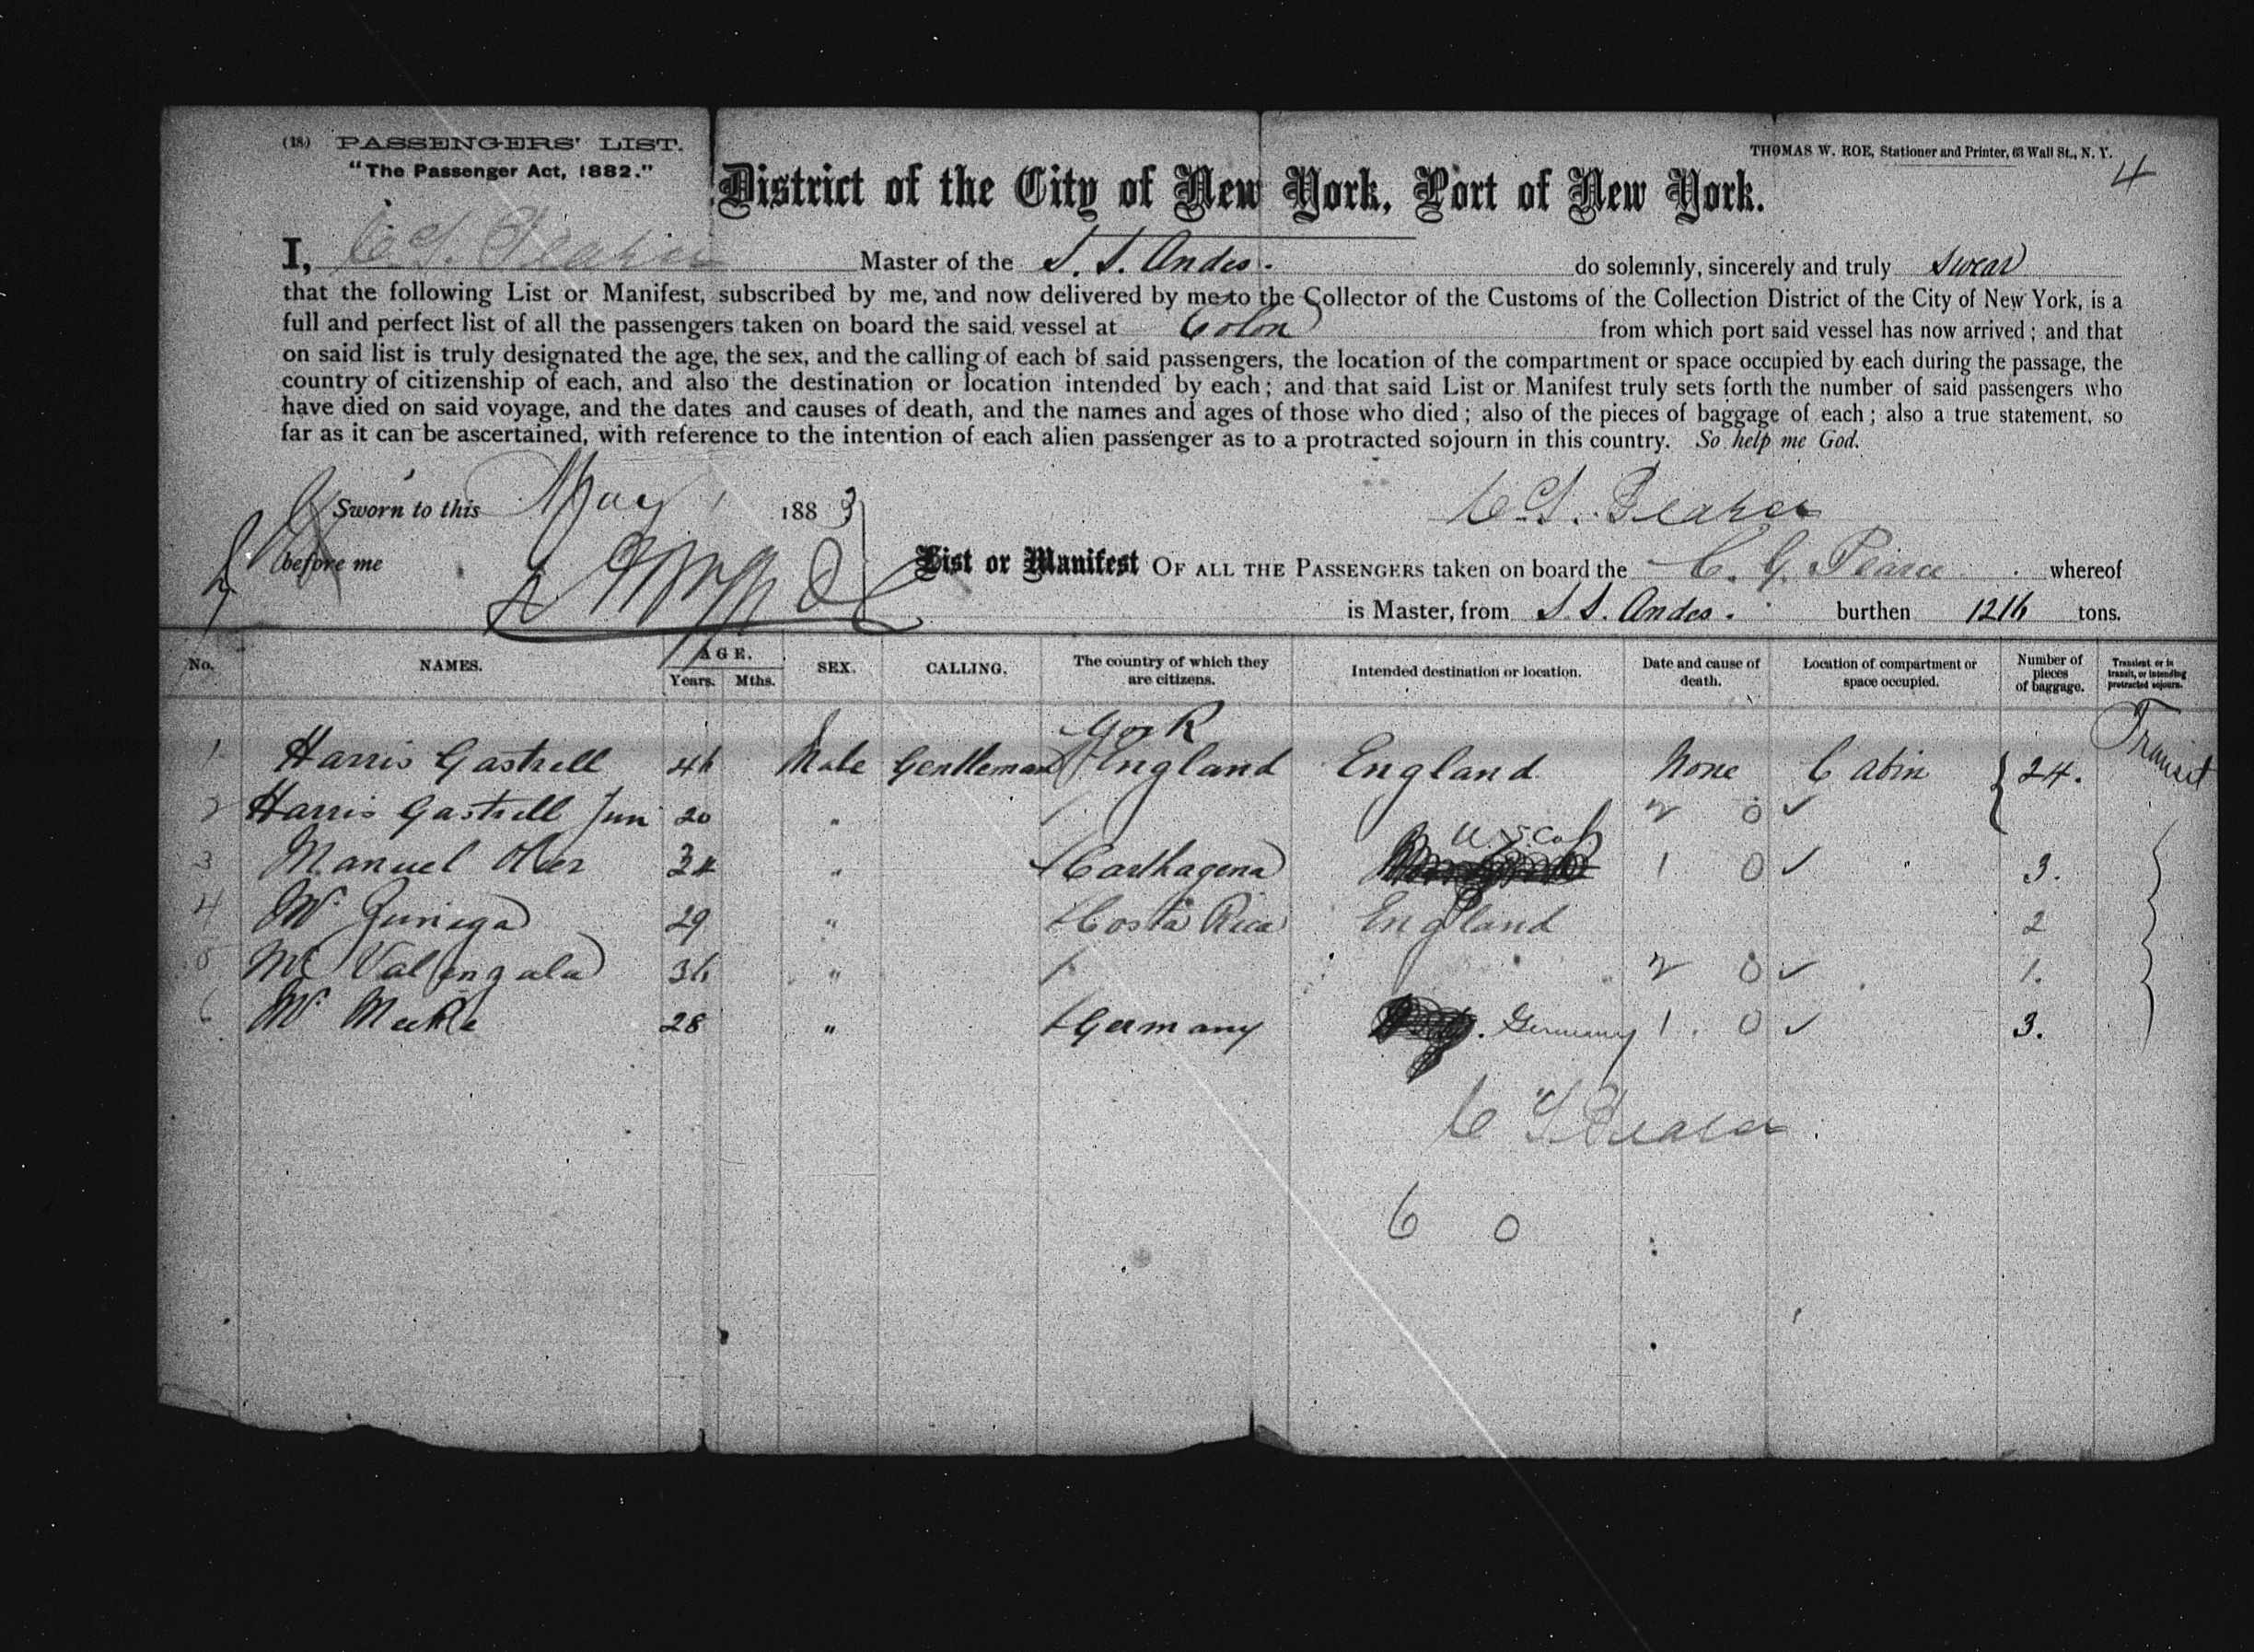 (18) PASSENGERS' LIST.
"The Passenger Act, 1882."
THOMAS W. ROE, Stationer and Printer, 63 Wall St., N. Y.
4
District of the City of New York, Port of New York.
I, Master of the S. S. Andes. do solemnly, sincerely and truly swear
that the following List or Manifest, subscribed by me, and now delivered by me to the Collector of the Customs of the Collection District of the City of New York, is a
full and perfect list of all the passengers taken on board the said vessel at Colon from which port said vessel has now arrived; and that
on said list is truly designated the age, the sex, and the calling of each of said passengers, the location of the compartment or space occupied by each during the passage, the
country of citizenship of each, and also the destination or location intended by each; and that said List or Manifest truly sets forth the number of said passengers who
have died on said voyage, and the dates and causes of death, and the names and ages of those who died; also of the pieces of baggage of each; also a true statement, so
far as it can be ascertained, with reference to the intention of each alien passenger as to a protracted sojourn in this country. So help me God.
Sworn to this May 1 1883
before me
List or Manifest OF ALL THE PASSENGERS taken on board the C. G. Pearce whereof
is Master, from S. S. Andes. burthen 1216 tons.
No. NAMES. AGE. Years. Mths. SEX. CALLING. The country of which they are citizens. Intended destination or location. Date and cause of death. Location of compartment or space occupied. Number of pieces of baggage. Transient or in transit, or intending protracted sojourn.
1 Harris Gastrell 46 Male Gentleman England England None Cabin 24. Transit
2 Harris Gastrell Jun 20 " 2 0 ✓
3 Manuel 34 " Carthagena 1 0 ✓ " 3.
4 Mr 29 " Costa Rica England 2
5 Mr 36 " 2 0 ✓ 1.
6 Mr 28 " Germany Germany 1 0 ✓ 3.
6 0